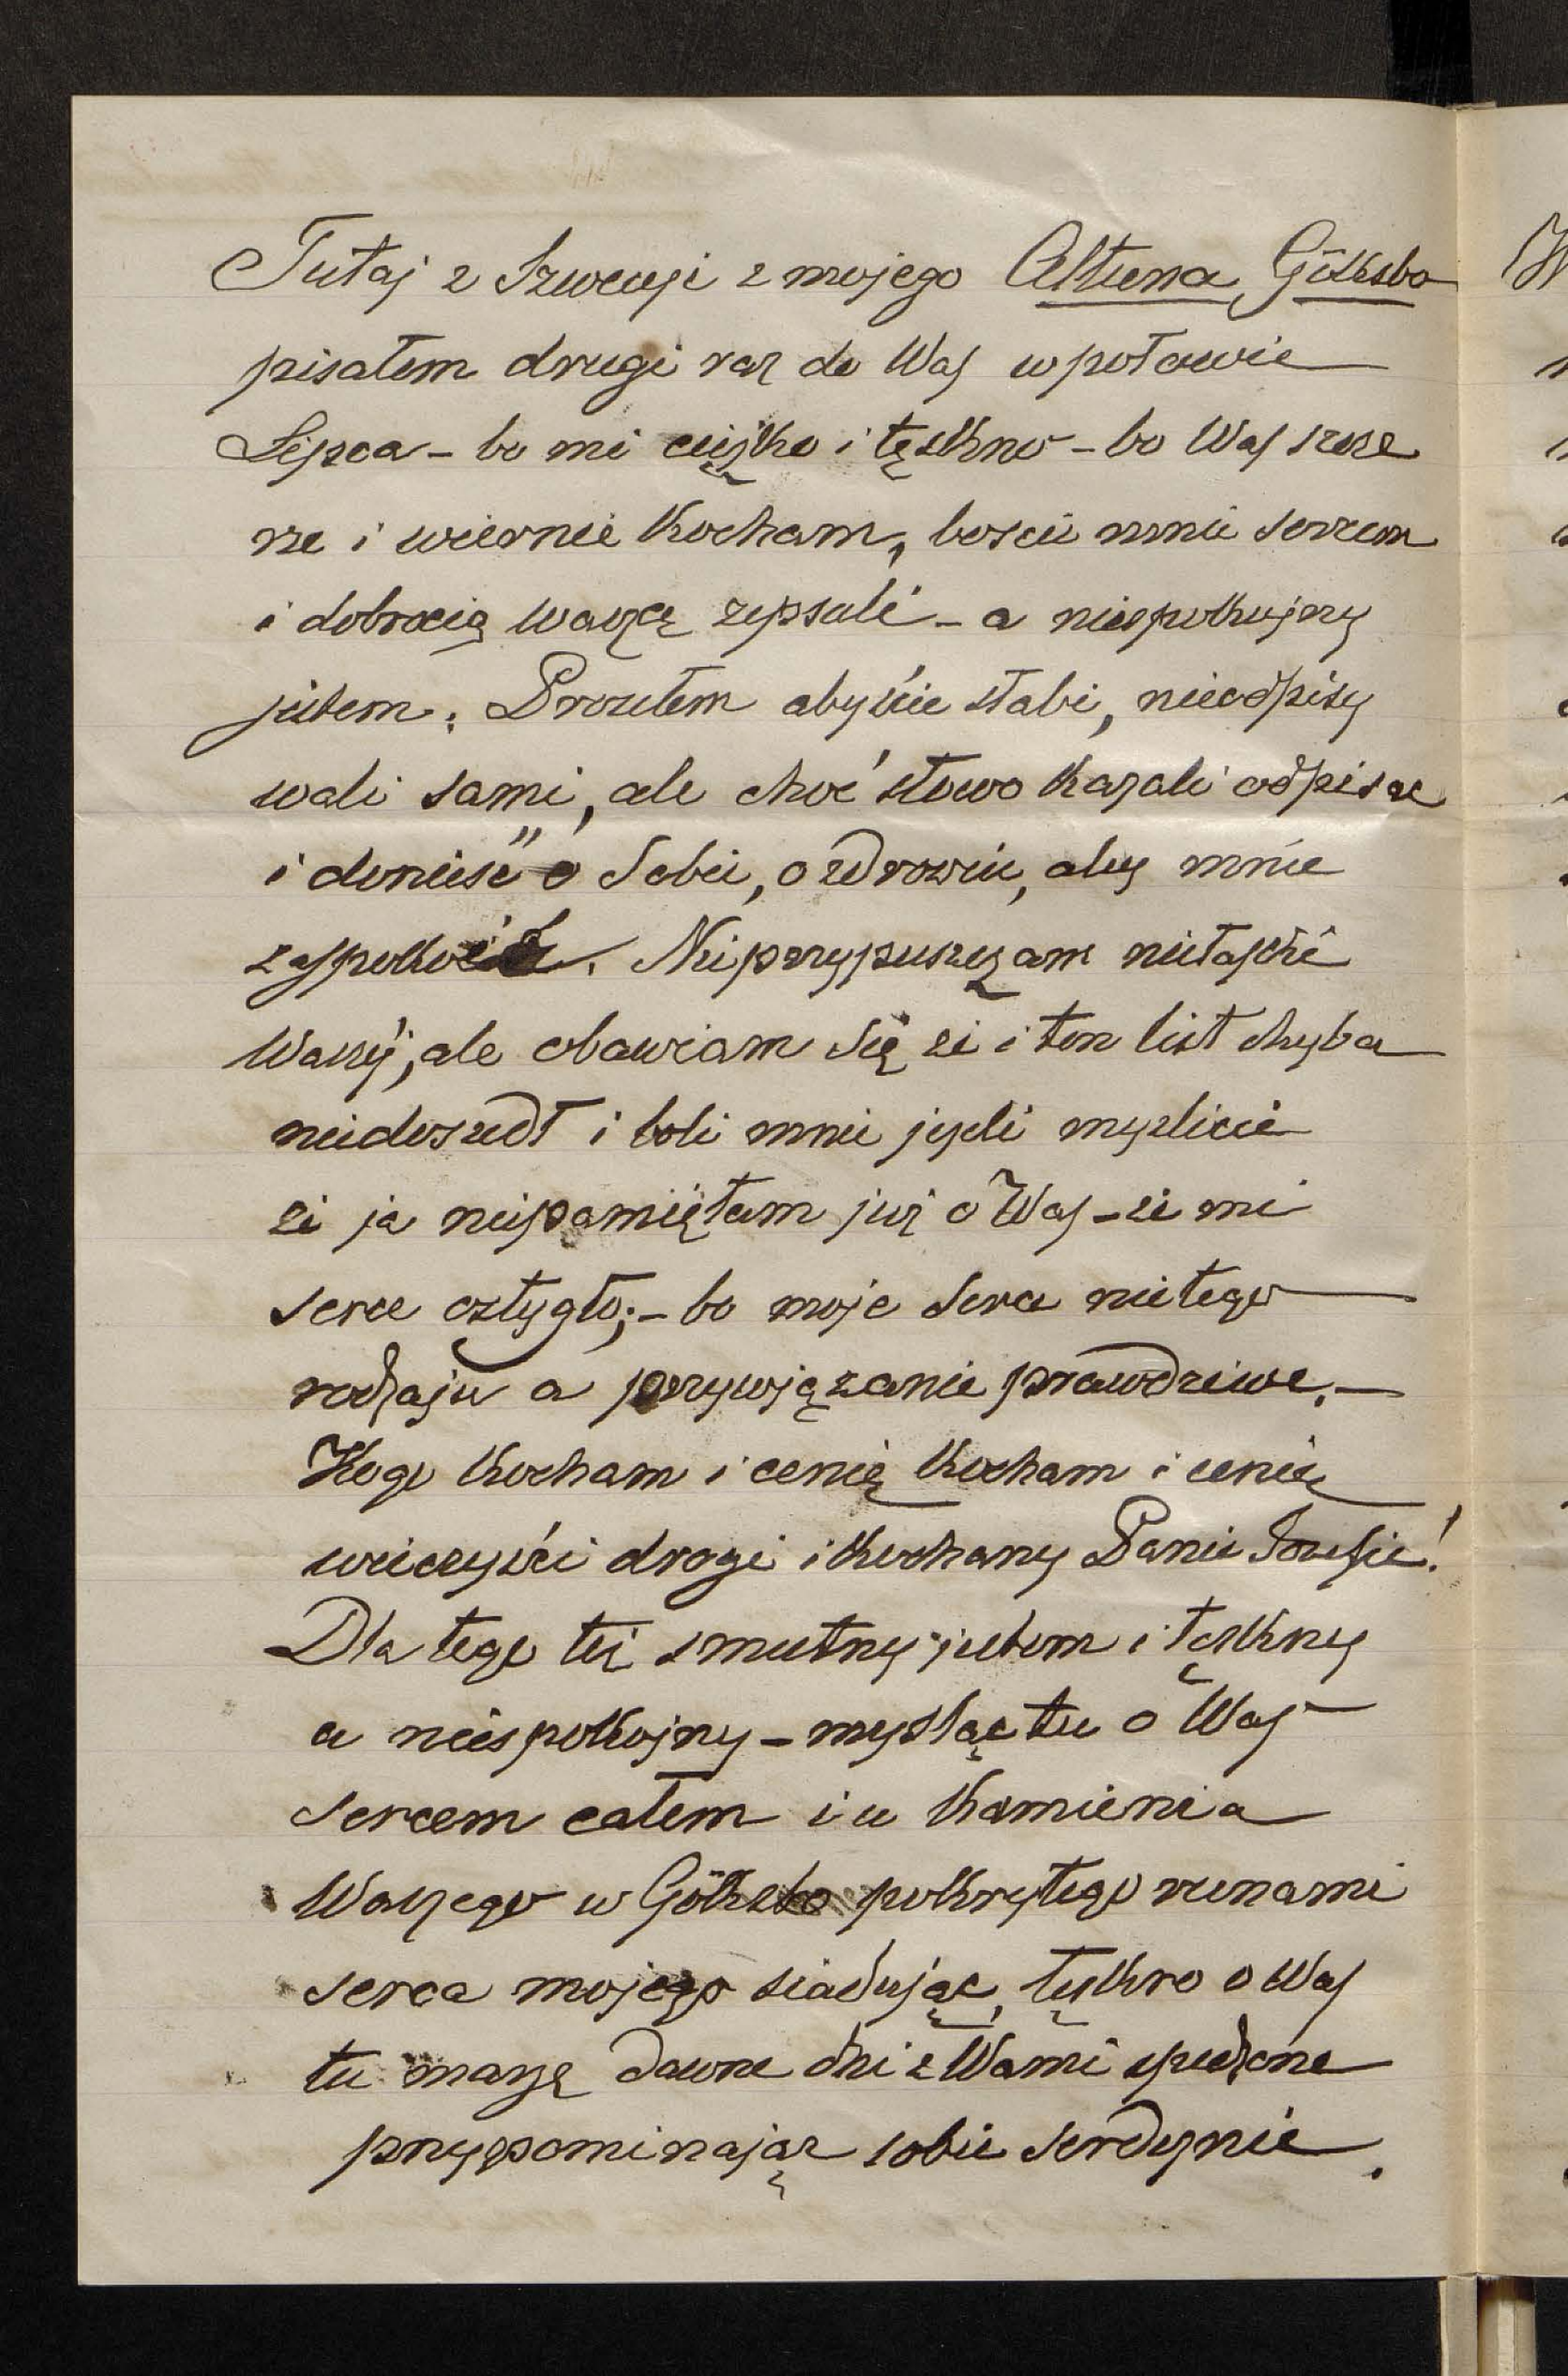 Tutaj z Szwecyi z mojego Altuna, Götksbo
pisałem drugi raz do Was w połowie
Lipca – bo mi ciężko i tęskno – bo Was szcze
rze i wiernie kocham, boście mnie sercem
i dobrocią waszą zepsuli – a niespokojny
jestem. Prosiłem abyście słabi, nieodpisy
wali sami, ale choć słowo kazali odpisać
i donieść o Sobie, o zdrowiu, aby mnie
zaspokoić. Nieprzypuszczam niełaski
Waszéj, ale obawiam się że i ten list chyba
niedoszedł i boli mnie jeżeli myślicie
że ja niepamiętam już o Was – że mi
serce ostygło; – bo moje serce nie tego
rodzaju a przywiązanie prawdziwe. –
Kogo kocham i cenię kocham i cenię
wieczyście drogi i kochany Panie Józefie!
Dla tego też smutny jestem i tęskny
a niespokojny – myśląc tu o Was
sercem całem i u kamienia
Waszego w Götksbo pokrytego runami
serca mojego siadując, tęskno o Was
tu marzę dawne dni z Wami spędzone
przypominając sobie serdecznie.